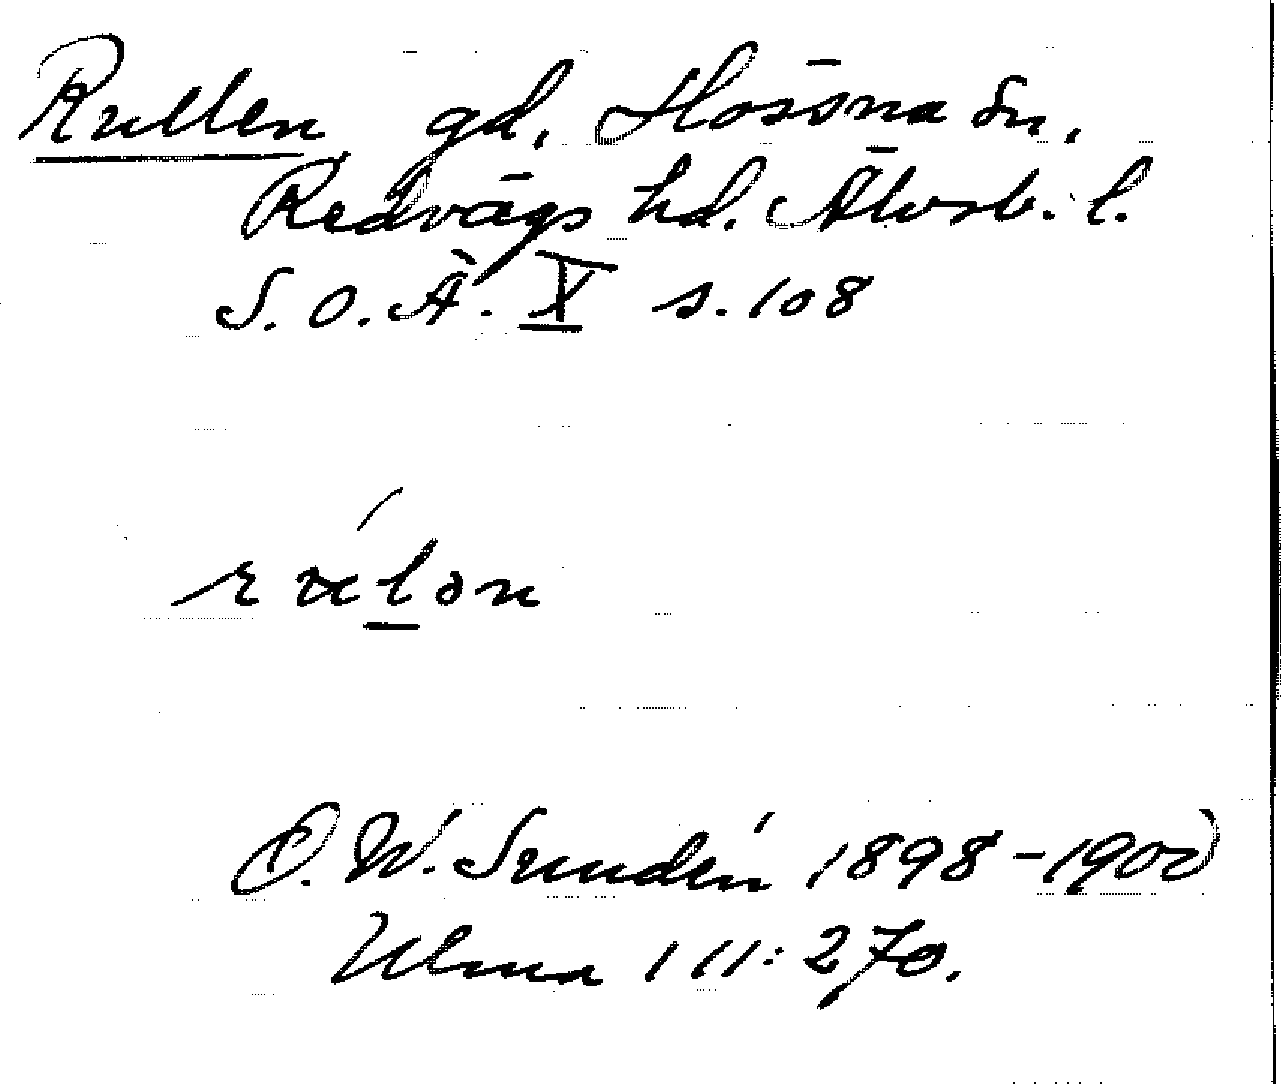 Rullen gd, Hössna sn,
Redvägs hd. Älvsb. l.
S. O. Ä. X s. 108
D. W. Sundén 1898-1900
Ulma 111:270.